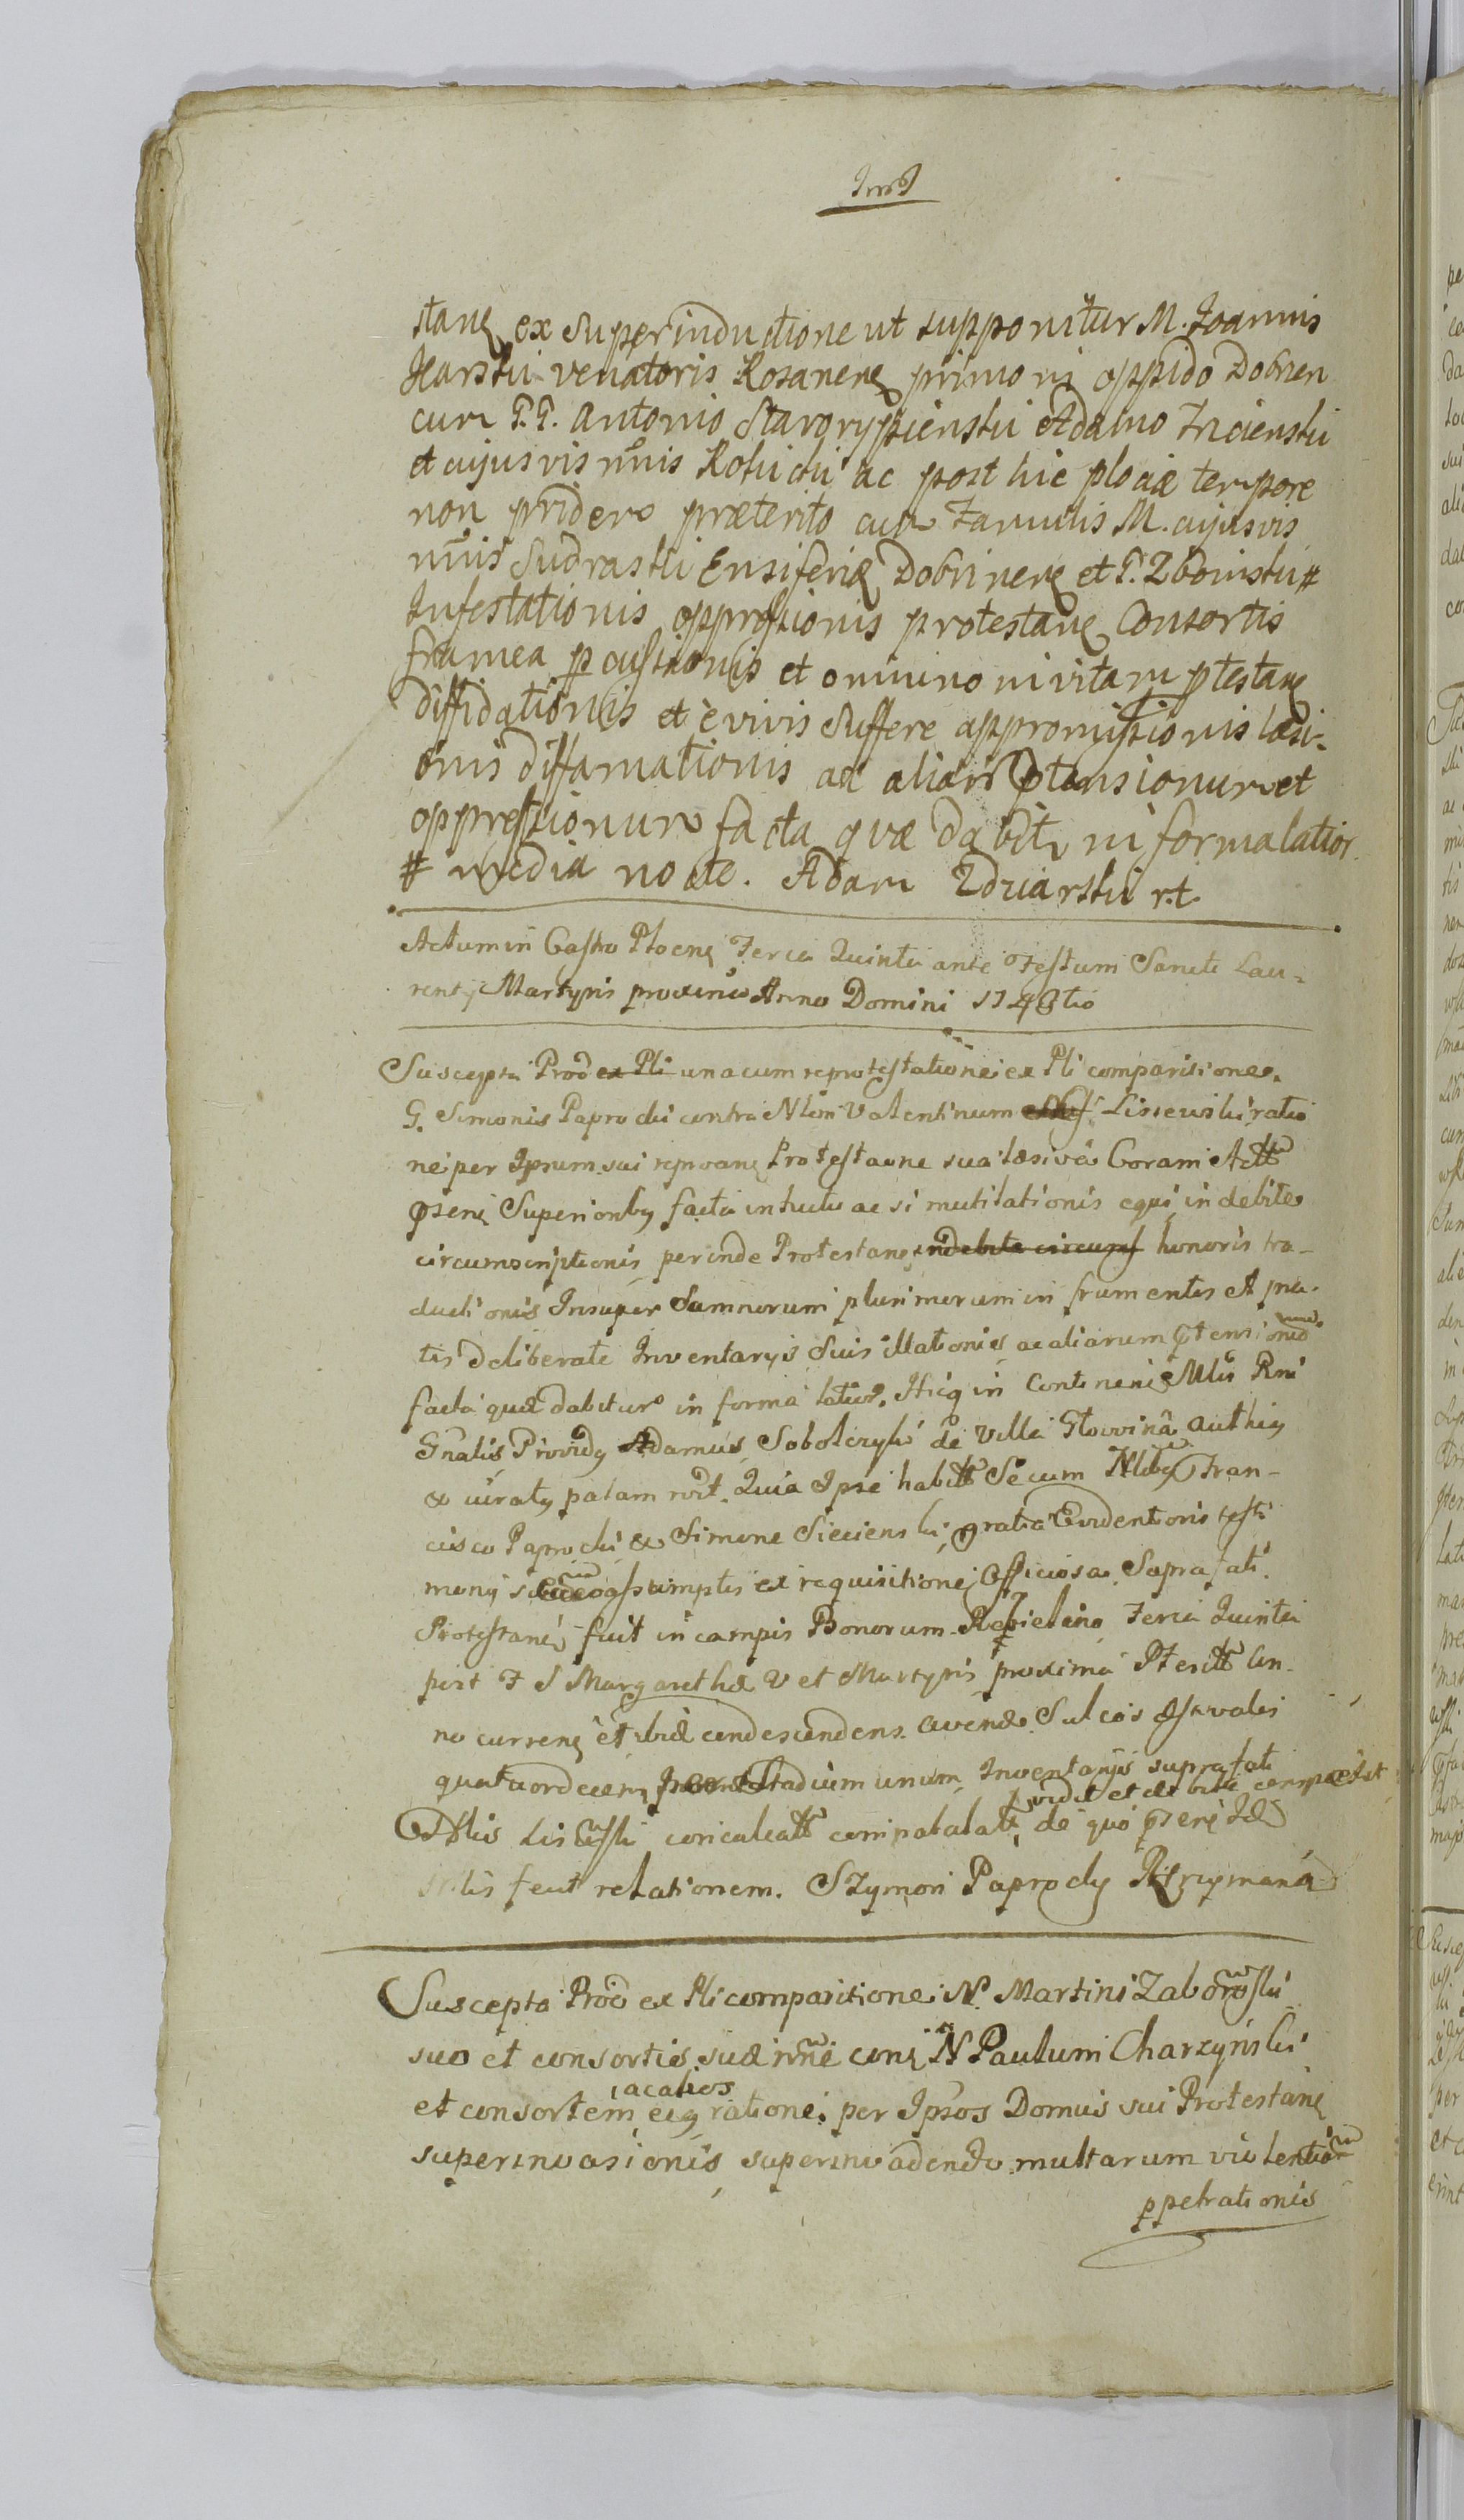 stanę ex Superinductione ut supponitur M. Joannis
Karski venatoris Rosanenę primo in oppido Dobrien
cum G.G. Antonio Starorypienski Adamo Trcienski
et cujusvis nnis Rokicki ac post hic plociæ tempore
non pridem præterito cum Famulis M. cujusvis
nnis Sudraski Ensiferię Dobrinenę et G. Zboinski #
Infestationis oppressionis protestanę Consortis
framea pcussionis et omnino in vitam ptestanę
diffidationis et è vivis Suffere appromissionis læsi-
onis diffamationis ac aliarũ ptensionum et
oppressionum facta quæ dabitr in forma latior.
# media nocte. Adam Zdziarski r.t.
Actum in Castro Plocenę Feria Quinta ante Festum Sancti Lau-
rentij Martyris proximo Anno Domini 1748tio
Suscepta Prod ex Pli una cum reprotestatione ex Pli comparitione
G. Simonis Paprocki contra Nlem Valentinum Lisiewski ratio
ne per Ipsum sui reproanę Protestaone sua læsiva Coram Actt
pseñ Superionby facta intuitu ac si mutilationis equi indebite
circumscriptionis perinde Protestanę indebite circumś honoris tra-
ductionis Insuper Damnorum plurimorum in frumentis et pra-
tis deliberate Inventarys Suis illationis ac aliarum ptensionũ
facta quæ dabitur in forma latior. Hicq in Continenę Mlis Rni
Gnalis Providy Adamus Sobolczyk de Villa Głowina authęy
& juraty palam rvit. Quia Ipse habitt Secum Nliby Fran-
cisco Paprocki & Simone Siecienski gratia Evidentioris testi
monij assumptis ex requisitione Officiosa Suprafati
Protestanę fuit in campis Bonorum Feria Quinta
post F S Margarethæ V et Martyris proxima Pteritt An-
no currenę et ibid condescendens avenæ Sulcos æstivales
quatuordecem Stadium unum Inventarijs suprafati
vidit et de bite comparuit
Nlis Lisiewski conculcatt compatulatt, de quo pserę Id
Mlis fecit relationem. Szymon Paprocky
Suscepta Prod ex Pli comparitione N. Martini Zaborowski
suo et consortis suæ nñe conę N Paulum Charzynski
ac alios
et consortem eig ratione per Ipsos Domus sui Protestanę
superinvasionis superinvadendo multarum violentiarũ
ppetrationis